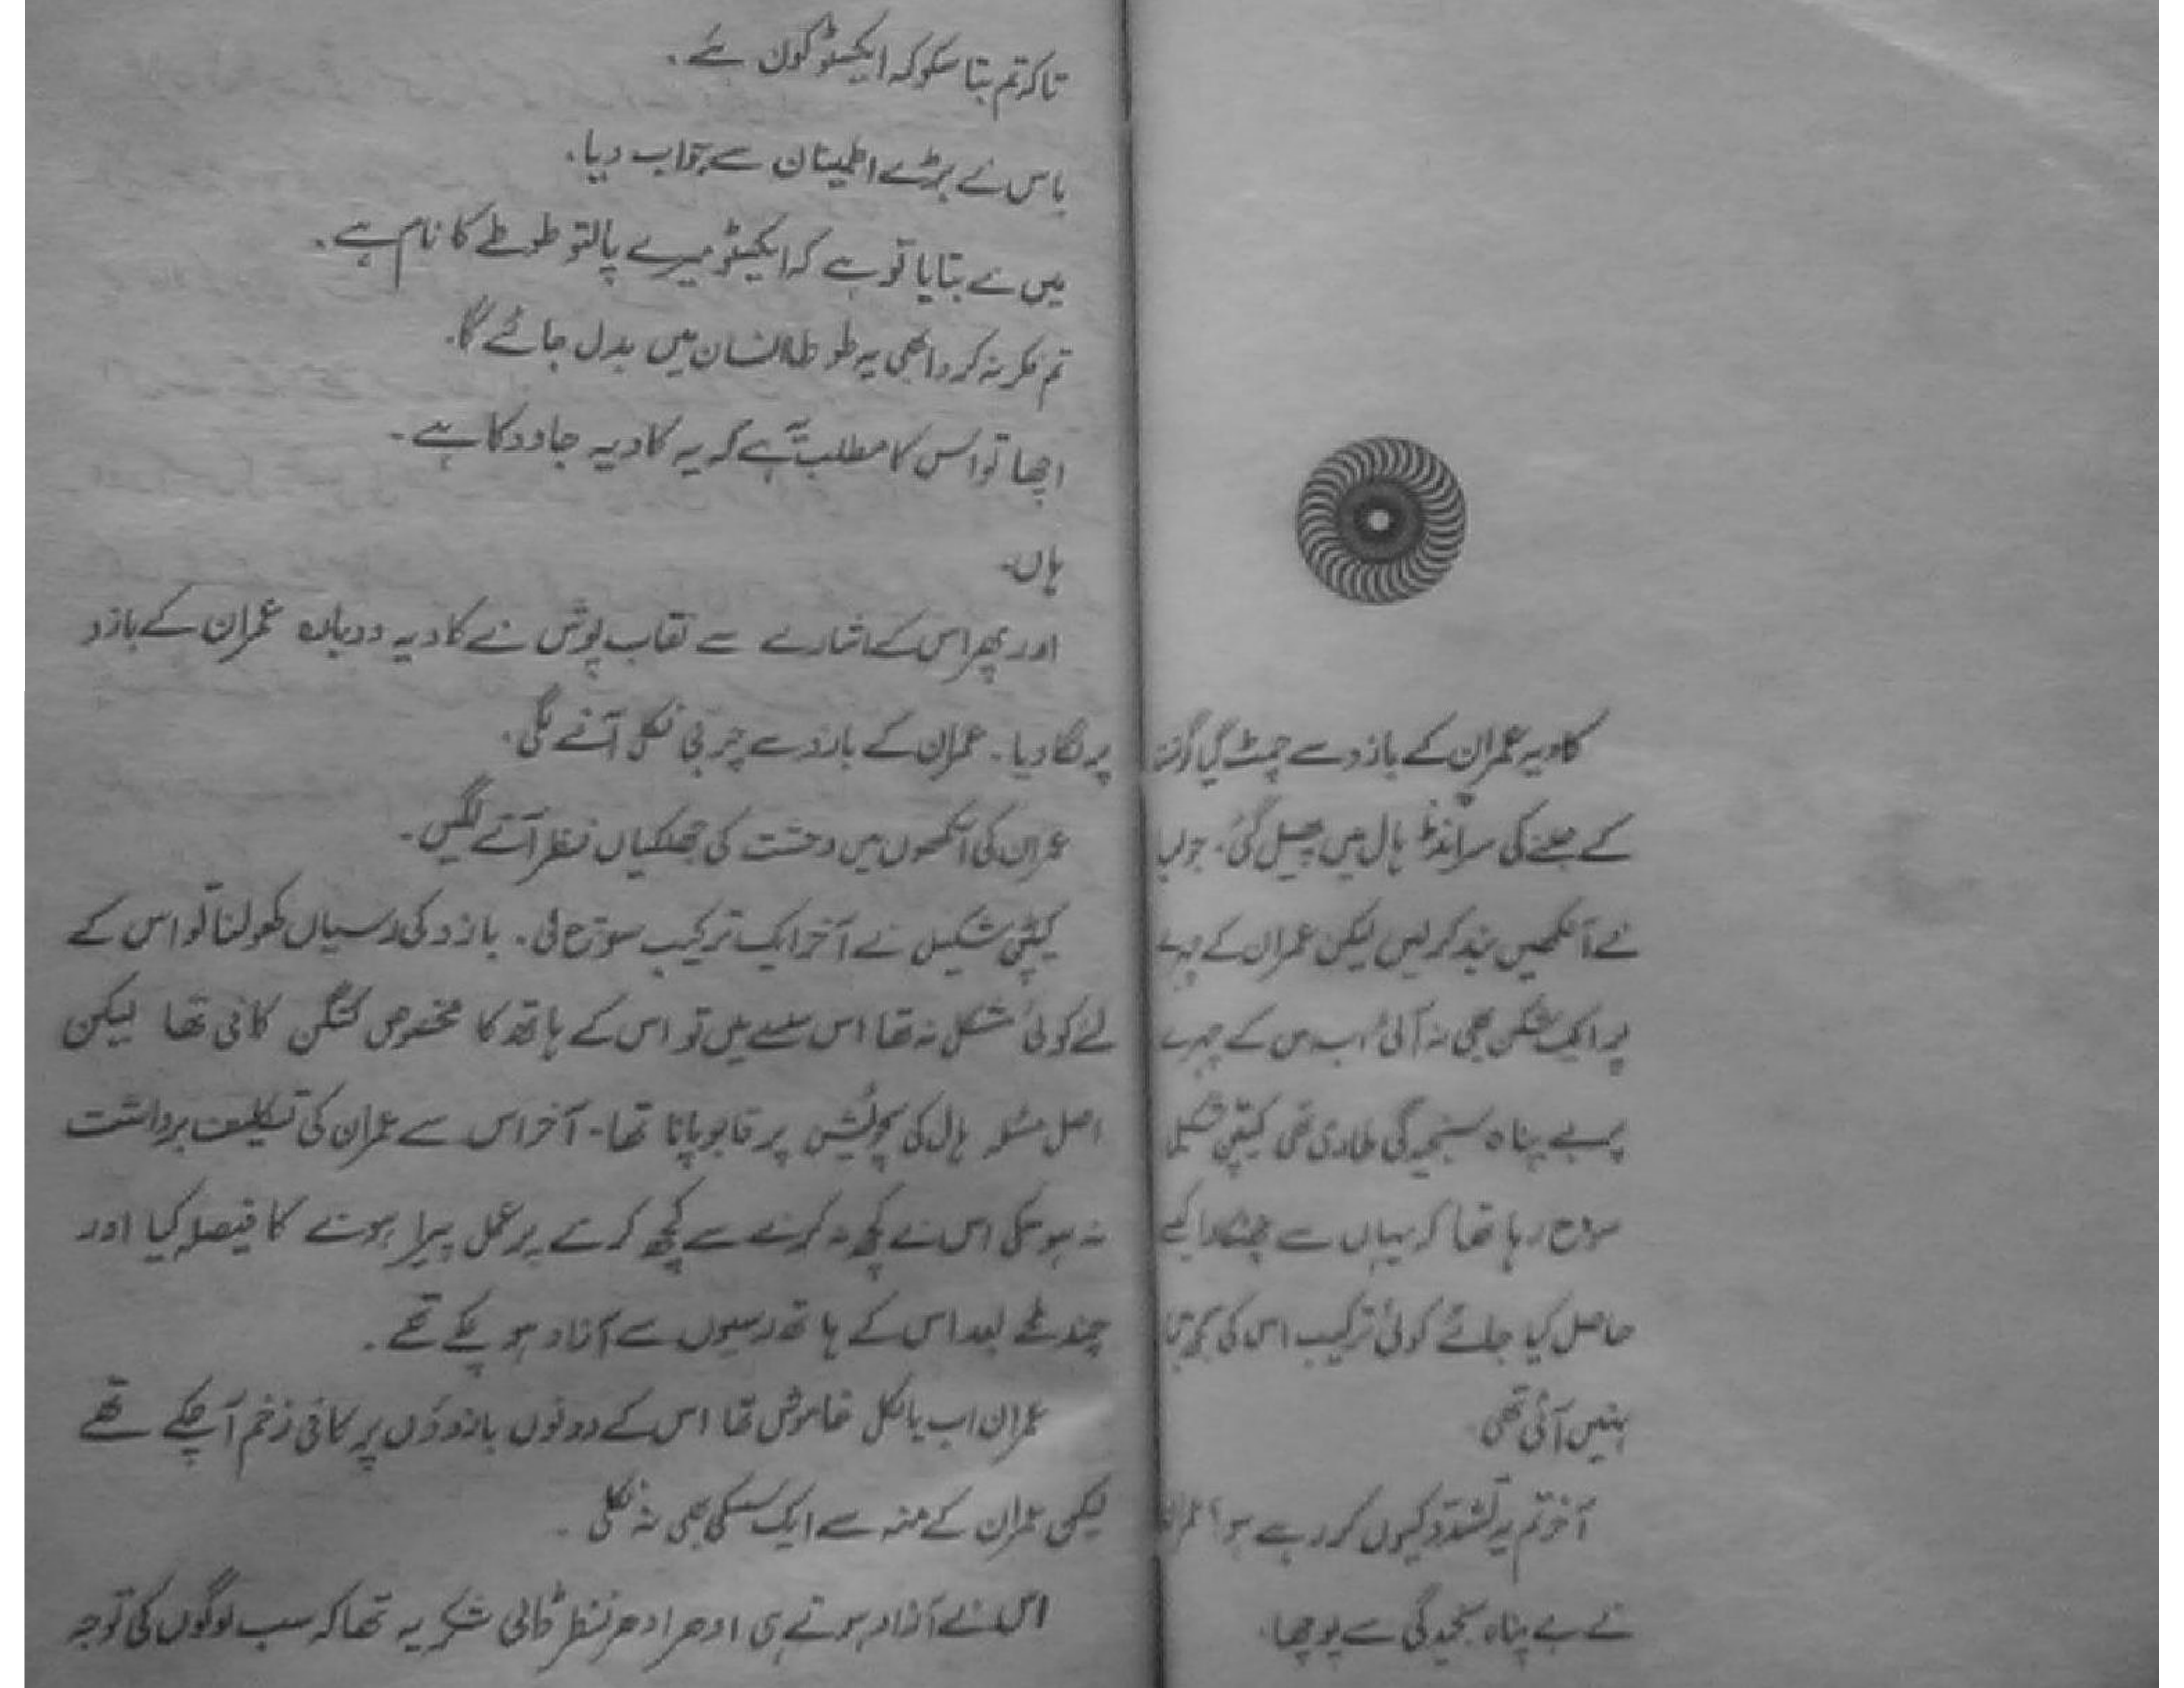 کادیہ عمران کے بازو سے چمٹ گیا گوشت
کے جلنے کی سرانڈ ہال میں پھیل گئی۔ جولیا
نے آنکھیں بند کر لیں لیکن عمران کے چہرے
پر ایک شکن بھی نہ آئی اب اس کے چہرے
پر بے پناہ سنجیدگی طاری تھی کیپٹن شکیل
سوچ رہا تھا کہ یہاں سے چھٹکارا کیسے
حاصل کیا جائے کوئی ترکیب اس کی سمجھ
نہیں آئی تھی
آخر تم یہ تشدد کیوں کر رہے ہو؟ عمران
نے بے پناہ سنجیدگی سے پوچھا۔
تاکہ تم بتا سکو کہ ایکسٹو کون ہے۔
باس نے بڑے اطمینان سے جواب دیا۔
میں نے بتایا تو ہے کہ ایکسٹو میرے پالتو طوطے کا نام ہے۔
تم فکر نہ کرو ابھی یہ طوطا انسان میں بدل جائے گا۔
اچھا تو اس کا مطلب ہے کہ یہ کادیہ جادو کا ہے۔
ہاں۔
اور پھر اس کے اشارے سے نقاب پوش نے کادیہ دوبارہ عمران کے بازو
پر لگا دیا۔ عمران کے بازو سے چربی نکل آنے لگی۔
عمران کی آنکھوں میں وحشت کی جھلکیاں نظر آنے لگیں۔
کیپٹن شکیل نے آخر ایک ترکیب سوچ لی۔ بازو کی رسیاں کھولنا تو اس کے
لئے کوئی مشکل نہ تھا اس سلسلے میں تو اس کے ہاتھ کا مخصوص کنگن کافی تھا لیکن
اصل مسئلہ ہال کی پچویشن پر قابو پانا تھا۔ آخر اس سے عمران کی تکلیف برداشت
نہ ہو سکی اس نے کچھ نہ کرنے سے کچھ کرنے پر عمل پیرا ہونے کا فیصلہ کیا اور
چند لمحے بعد اس کے ہاتھ رسیوں سے آزاد ہو چکے تھے۔
عمران اب بالکل خاموش تھا اس کے دونوں بازوؤں پر کافی زخم آ چکے تھے
لیکن عمران کے منہ سے ایک سسکی بھی نہ نکلی۔
اس نے آزاد ہوتے ہی ادھر ادھر نظر ڈالی شکر یہ تھا کہ سب لوگوں کی توجہ